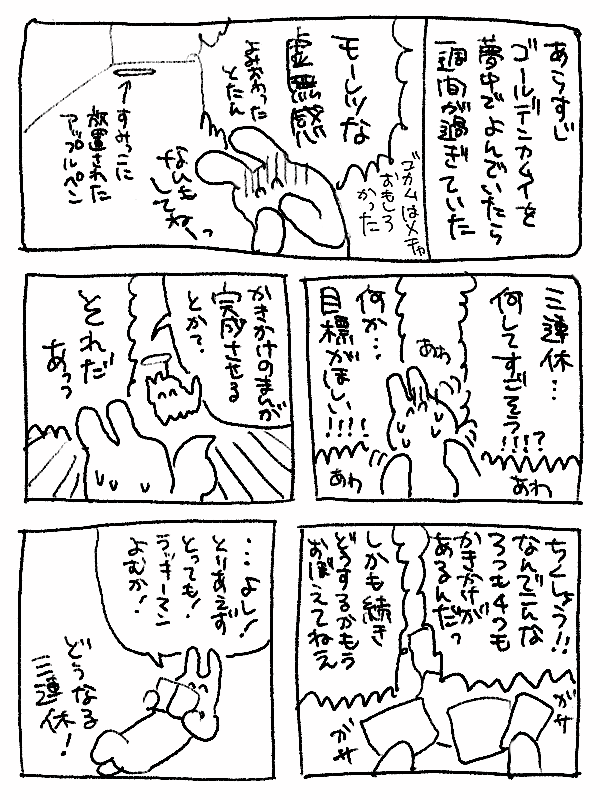 あらすじ
ゴールデンカムイを
夢中でよんでいたら
一週間が過ぎていた
ゴカムはメチャ
おもしろ
かった
モーレツな
虚無感
よみおわった
とたん
なんも
してねーっ
すみっこに
放置された
アップルペン
三連休…
何してすごそう!!!?
何か…
目標がほしい!!!!
あわ
あわ
あわ
かきかけのまんが
完成させる
とか?
それだ
あっっ
ちくしょう!!
なんでこんな
3つも4つも
かきかけが
あるんだっ
しかも続き
どうするかもう
おぼえてねえ
ガサ
ガサ
…よし!
とりあえず
とっても!
ラッキーマン
よむか!
どうなる
三連休!